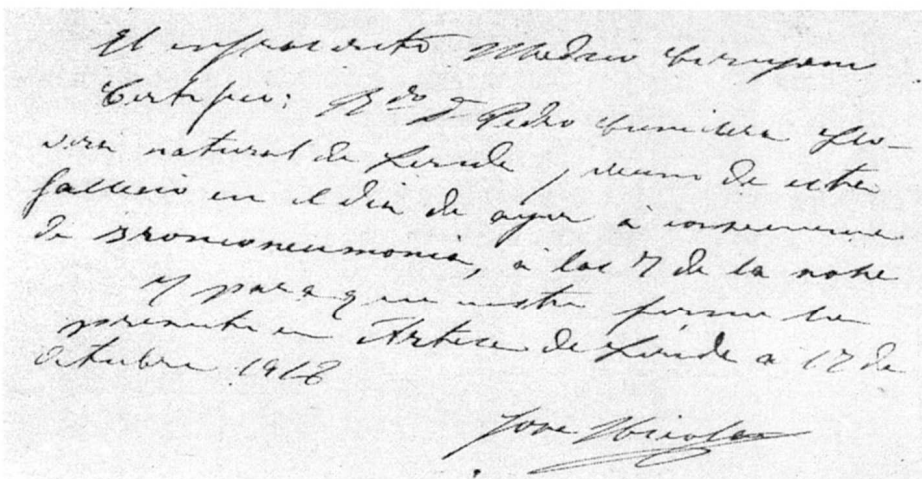 El infrascrito Medico Cirujano
Certifica: Rdo Dn Pedro Llo-
vera natural de Lerida y vecino de esta
fallecio en el dia de ayer à consecuencia
de Bronconeumonia, a las 7 de la noche
Y para que conste firmo la
presente en Artesa de Lerida a 17 de
Octubre 1918
Jose Nicolas